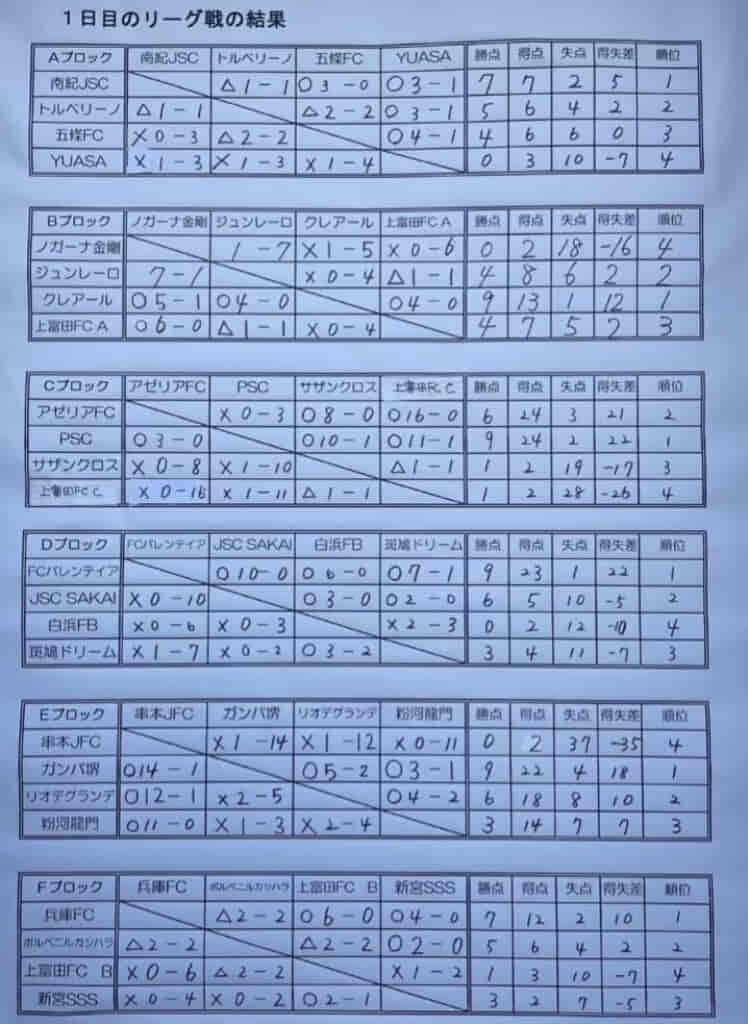 1日目のリーグ戦の結果
Aブロック 南紀JSC トルベリーノ 五條FC YUASA 勝点 得点 失点 得失差 順位
南紀JSC △1-1 ○3-0 ○3-1 7 7 2 5 1
トルベリーノ △1-1 △2-2 ○3-1 5 6 4 2 2
五條FC ×0-3 △2-2 ○4-1 4 6 6 0 3
YUASA ×1-3 ×1-3 ×1-4 0 3 10 -7 4
Bブロック ノガーナ金剛 ジュンレーロ クレアール 上富田FC A 勝点 得点 失点 得失差 順位
ノガーナ金剛 1-7 ×1-5 ×0-6 0 2 18 -16 4
ジュンレーロ 7-1 ×0-4 △1-1 4 8 6 2 2
クレアール ○5-1 ○4-0 ○4-0 9 13 1 12 1
上富田FC A ○6-0 △1-1 ×0-4 4 7 5 2 3
Cブロック アゼリアFC PSC サザンクロス 上富田FC C 勝点 得点 失点 得失差 順位
アゼリアFC ×0-3 ○8-0 ○16-0 6 24 3 21 2
PSC ○3-0 ○10-1 ○11-1 9 24 2 22 1
サザンクロス ×0-8 ×1-10 △1-1 1 2 19 -17 3
上富田FC C ×0-16 ×1-11 △1-1 1 2 28 -26 4
Dブロック FCバレンティア JSC SAKAI 白浜FB 斑鳩ドリーム 勝点 得点 失点 得失差 順位
FCバレンティア ○10-0 ○6-0 ○7-1 9 23 1 22 1
JSC SAKAI ×0-10 ○3-0 ○2-0 6 5 10 -5 2
白浜FB ×0-6 ×0-3 ×2-3 0 2 12 -10 4
斑鳩ドリーム ×1-7 ×0-2 ○3-2 3 4 11 -7 3
Eブロック 串本JFC ガンバ堺 リオデグランデ 粉河龍門 勝点 得点 失点 得失差 順位
串本JFC ×1-14 ×1-12 ×0-11 0 2 37 -35 4
ガンバ堺 ○14-1 ○5-2 ○3-1 9 22 4 18 1
リオデグランデ ○12-1 ×2-5 ○4-2 6 18 8 10 2
粉河龍門 ○11-0 ×1-3 ×2-4 3 14 7 7 3
Fブロック 兵庫FC ポルベニルカシハラ 上富田FC B 新宮SSS 勝点 得点 失点 得失差 順位
兵庫FC △2-2 ○6-0 ○4-0 7 12 2 10 1
ポルベニルカシハラ △2-2 △2-2 ○2-0 5 6 4 2 2
上富田FC B ×0-6 △2-2 ×1-2 1 3 10 -7 4
新宮SSS ×0-4 ×0-2 ○2-1 3 2 7 -5 3